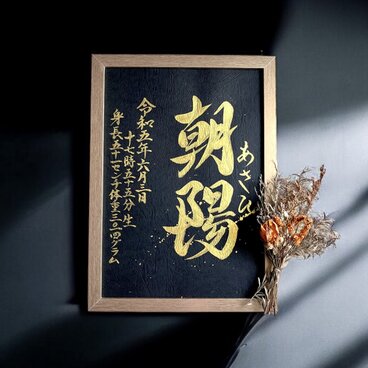 朝陽
あさひ
令和五年六月三日
十七時五十五分生
身長五十一センチ体重三〇二四グラム